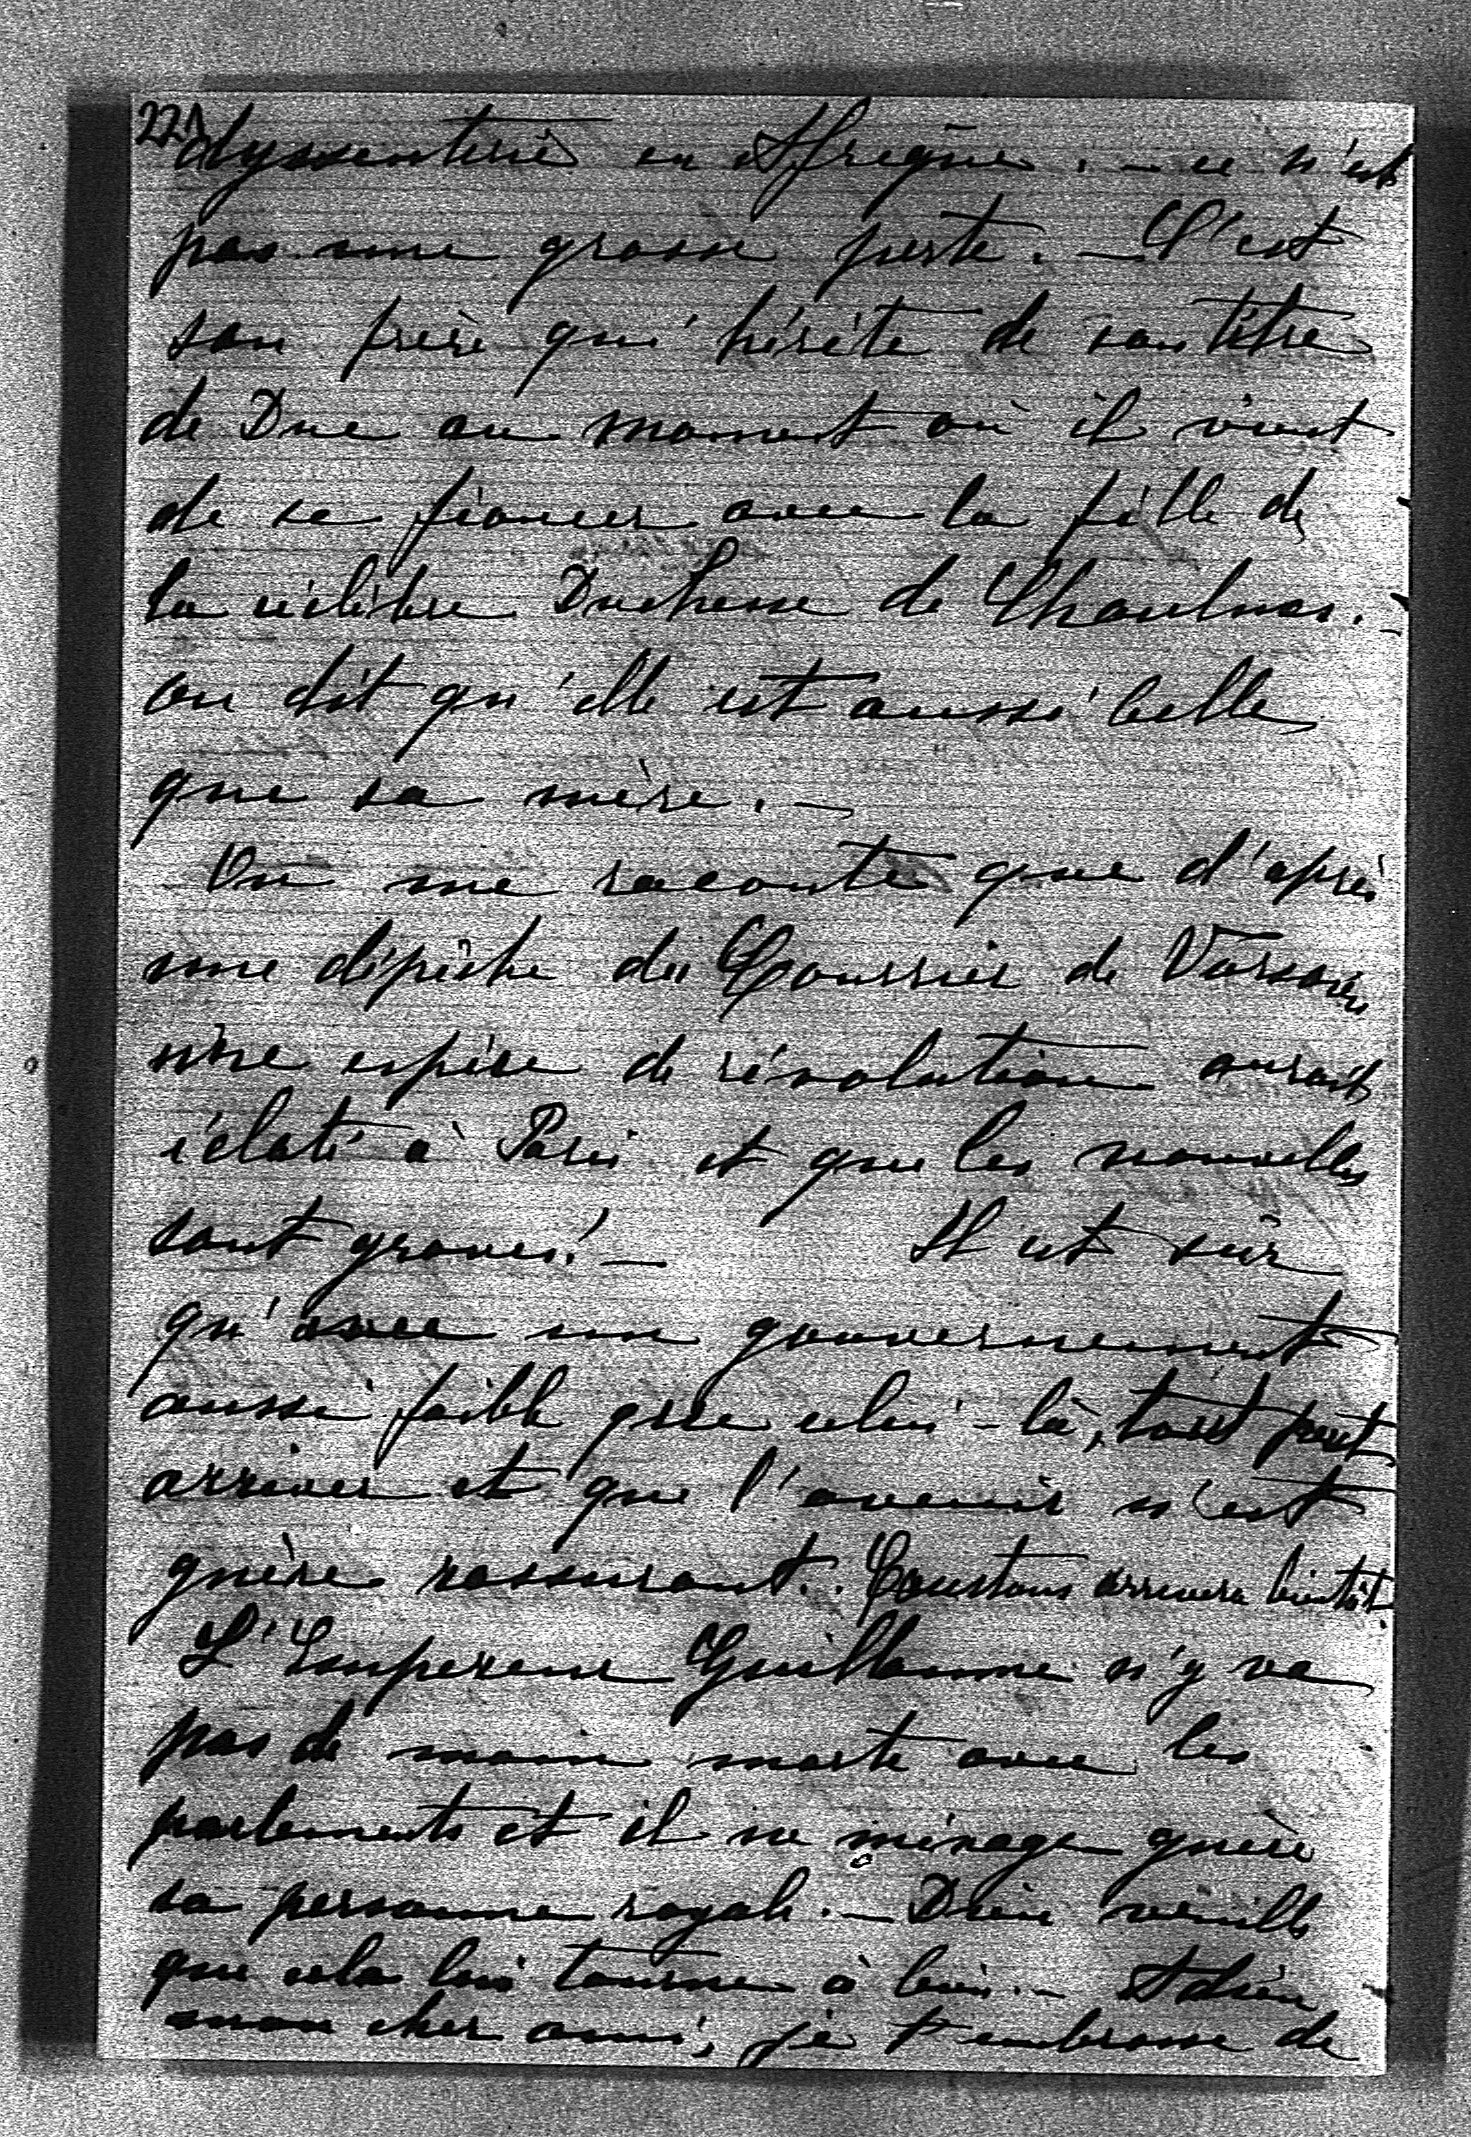 221
dyssenterie en Afrique. – ce n'est
pas une grosse perte. – C'est
son frère qui hérite de son titre
de Duc au moment où il vient
de se fiancer avec la fille de
la célèbre Duchesse de Chaulnes. –
on dit qu'elle est aussi belle
que sa mère. –
On me raconte que d'après
une dépêche du Courrier de Varsovie
une espèce de révolution aurait
éclaté à Paris et que les nouvelles
sont graves! – Il est sûr
qu'avec un gouvernement
aussi faible que celui-là, tout peut
arriver et que l'avenir n'est
guère rassurant. Coustous arrivera bientôt.
L'Empereur Guillaume n'y va
pas de main morte avec les
parlements et il ne ménage guère
sa personne royale. – Dieu veuille
que cela lui tourne à bien. – Adieu
mon cher ami, je t'embrasse de